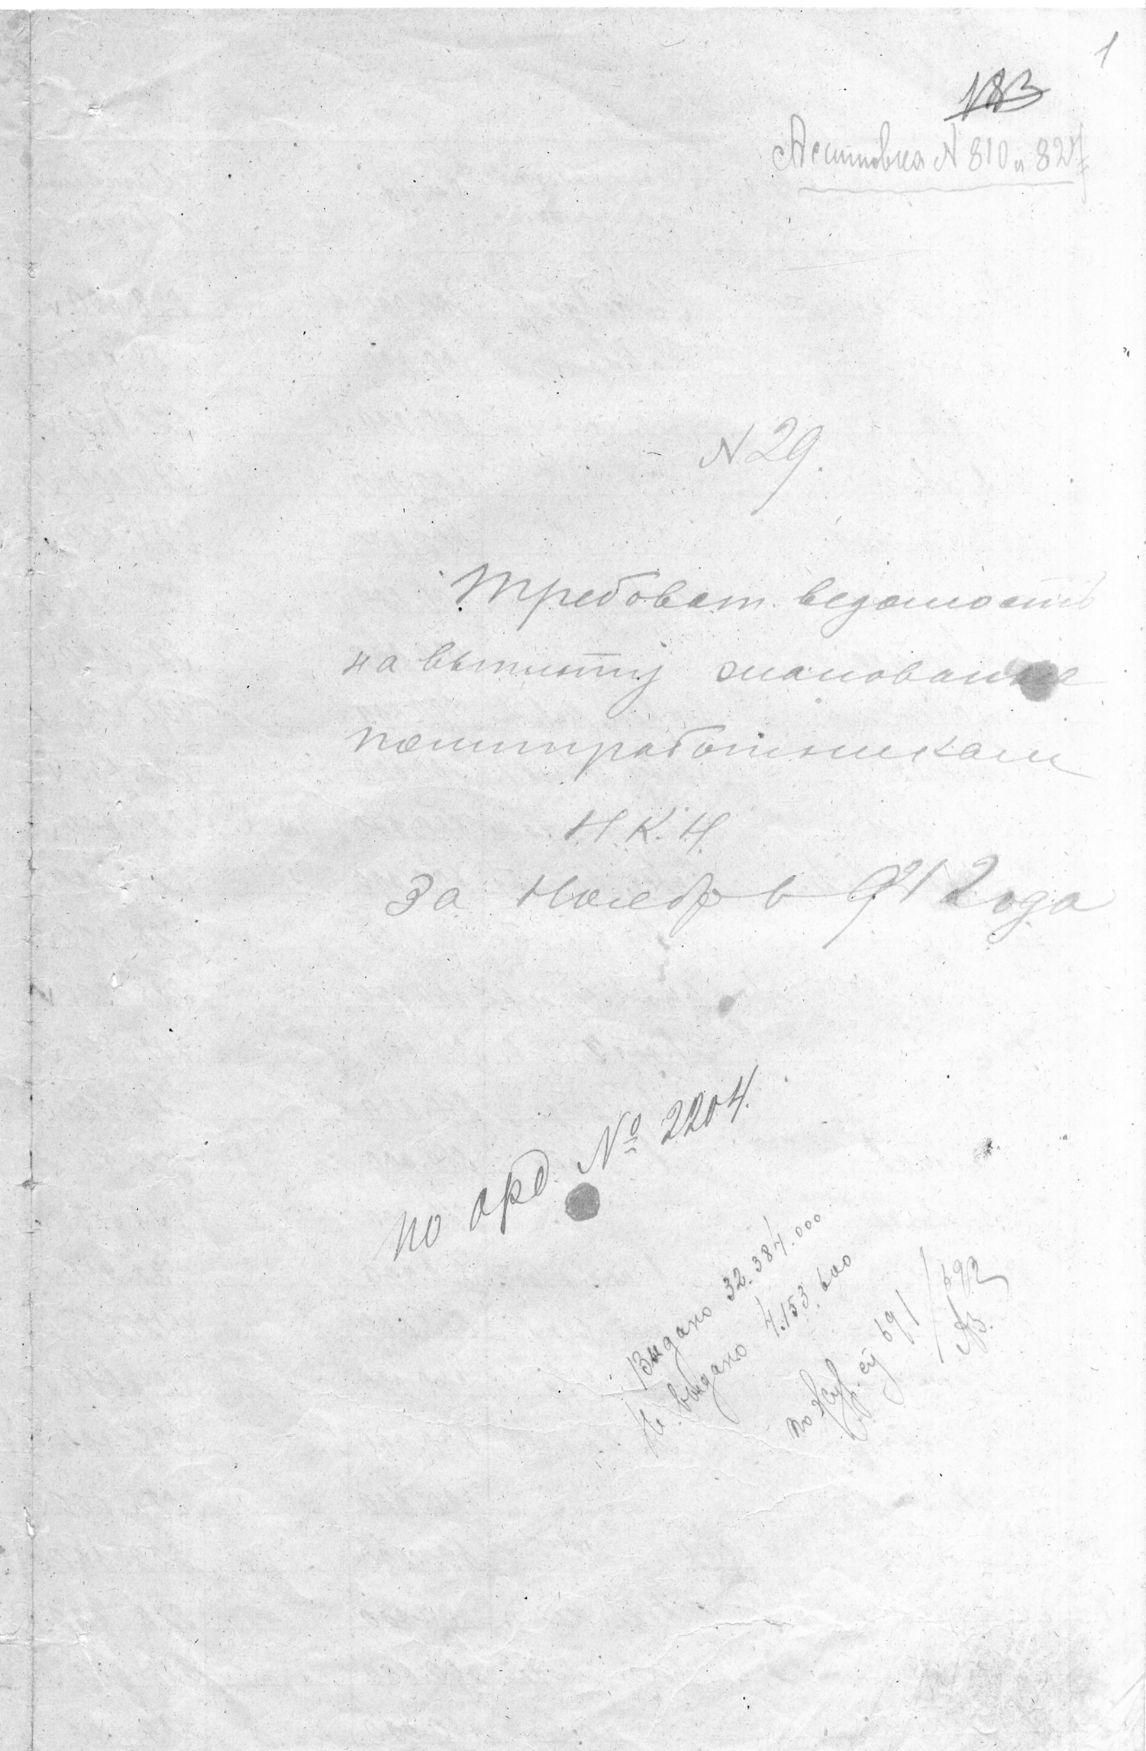 1
183
Ассиновка N 810 и 821
N 29.
Требоват. ведомость
на выплату жалования
политработникам
Н.К.Н.
за Ноябрь 921 года
по орд. № 2204.
Выдано 32.384.000
Не выдано 4.153.600
по жур. су 691/692